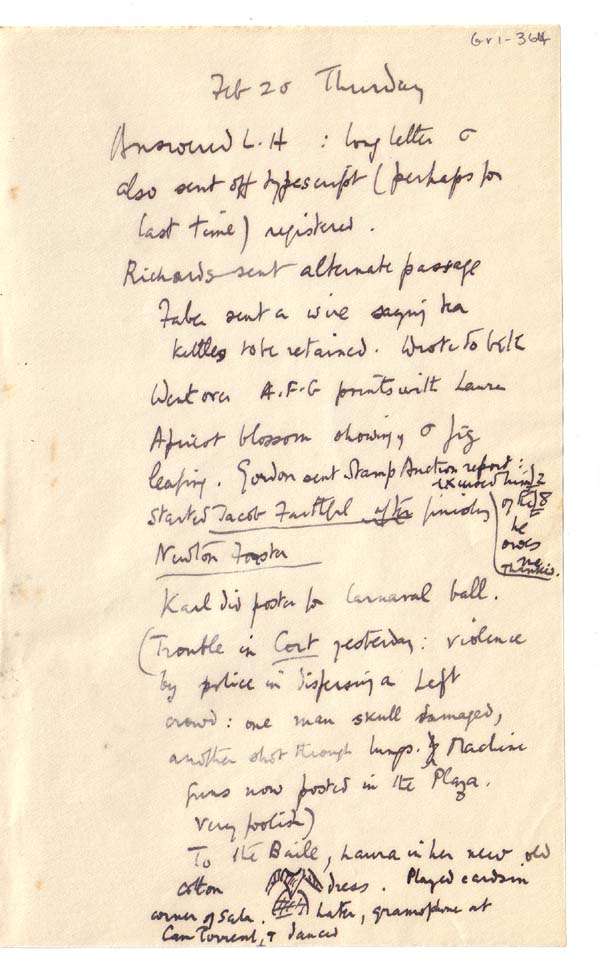 Gr1-364
Feb 20 Thursday
Answered L.H : long letter &
also sent off typescript (perhaps for
last time) registered.
Richards sent alternate passage
Faber sent a wire saying tea
kettles to be retained. Wrote to
Went over A.F-G prints with Laura
Apricot blossom showing & fig
leafing. Gordon sent Stamp Auction report:
excused him 2
of the 18
he
owes
me
Thankis.
started Jacob Faithful after finishing
Newton Forster
Karl did poster for Carnaval ball.
(Trouble in Cort yesterday: violence
by police in dispersing a Left
crowd: one man skull damaged,
another shot through lungs. Machine
guns now posted in the Plaza.
very foolish)
To the Baile, Laura in her new old
cotton dress. Played cards in
corner of Sala. Later, gramophone at
Can Torrent, & danced